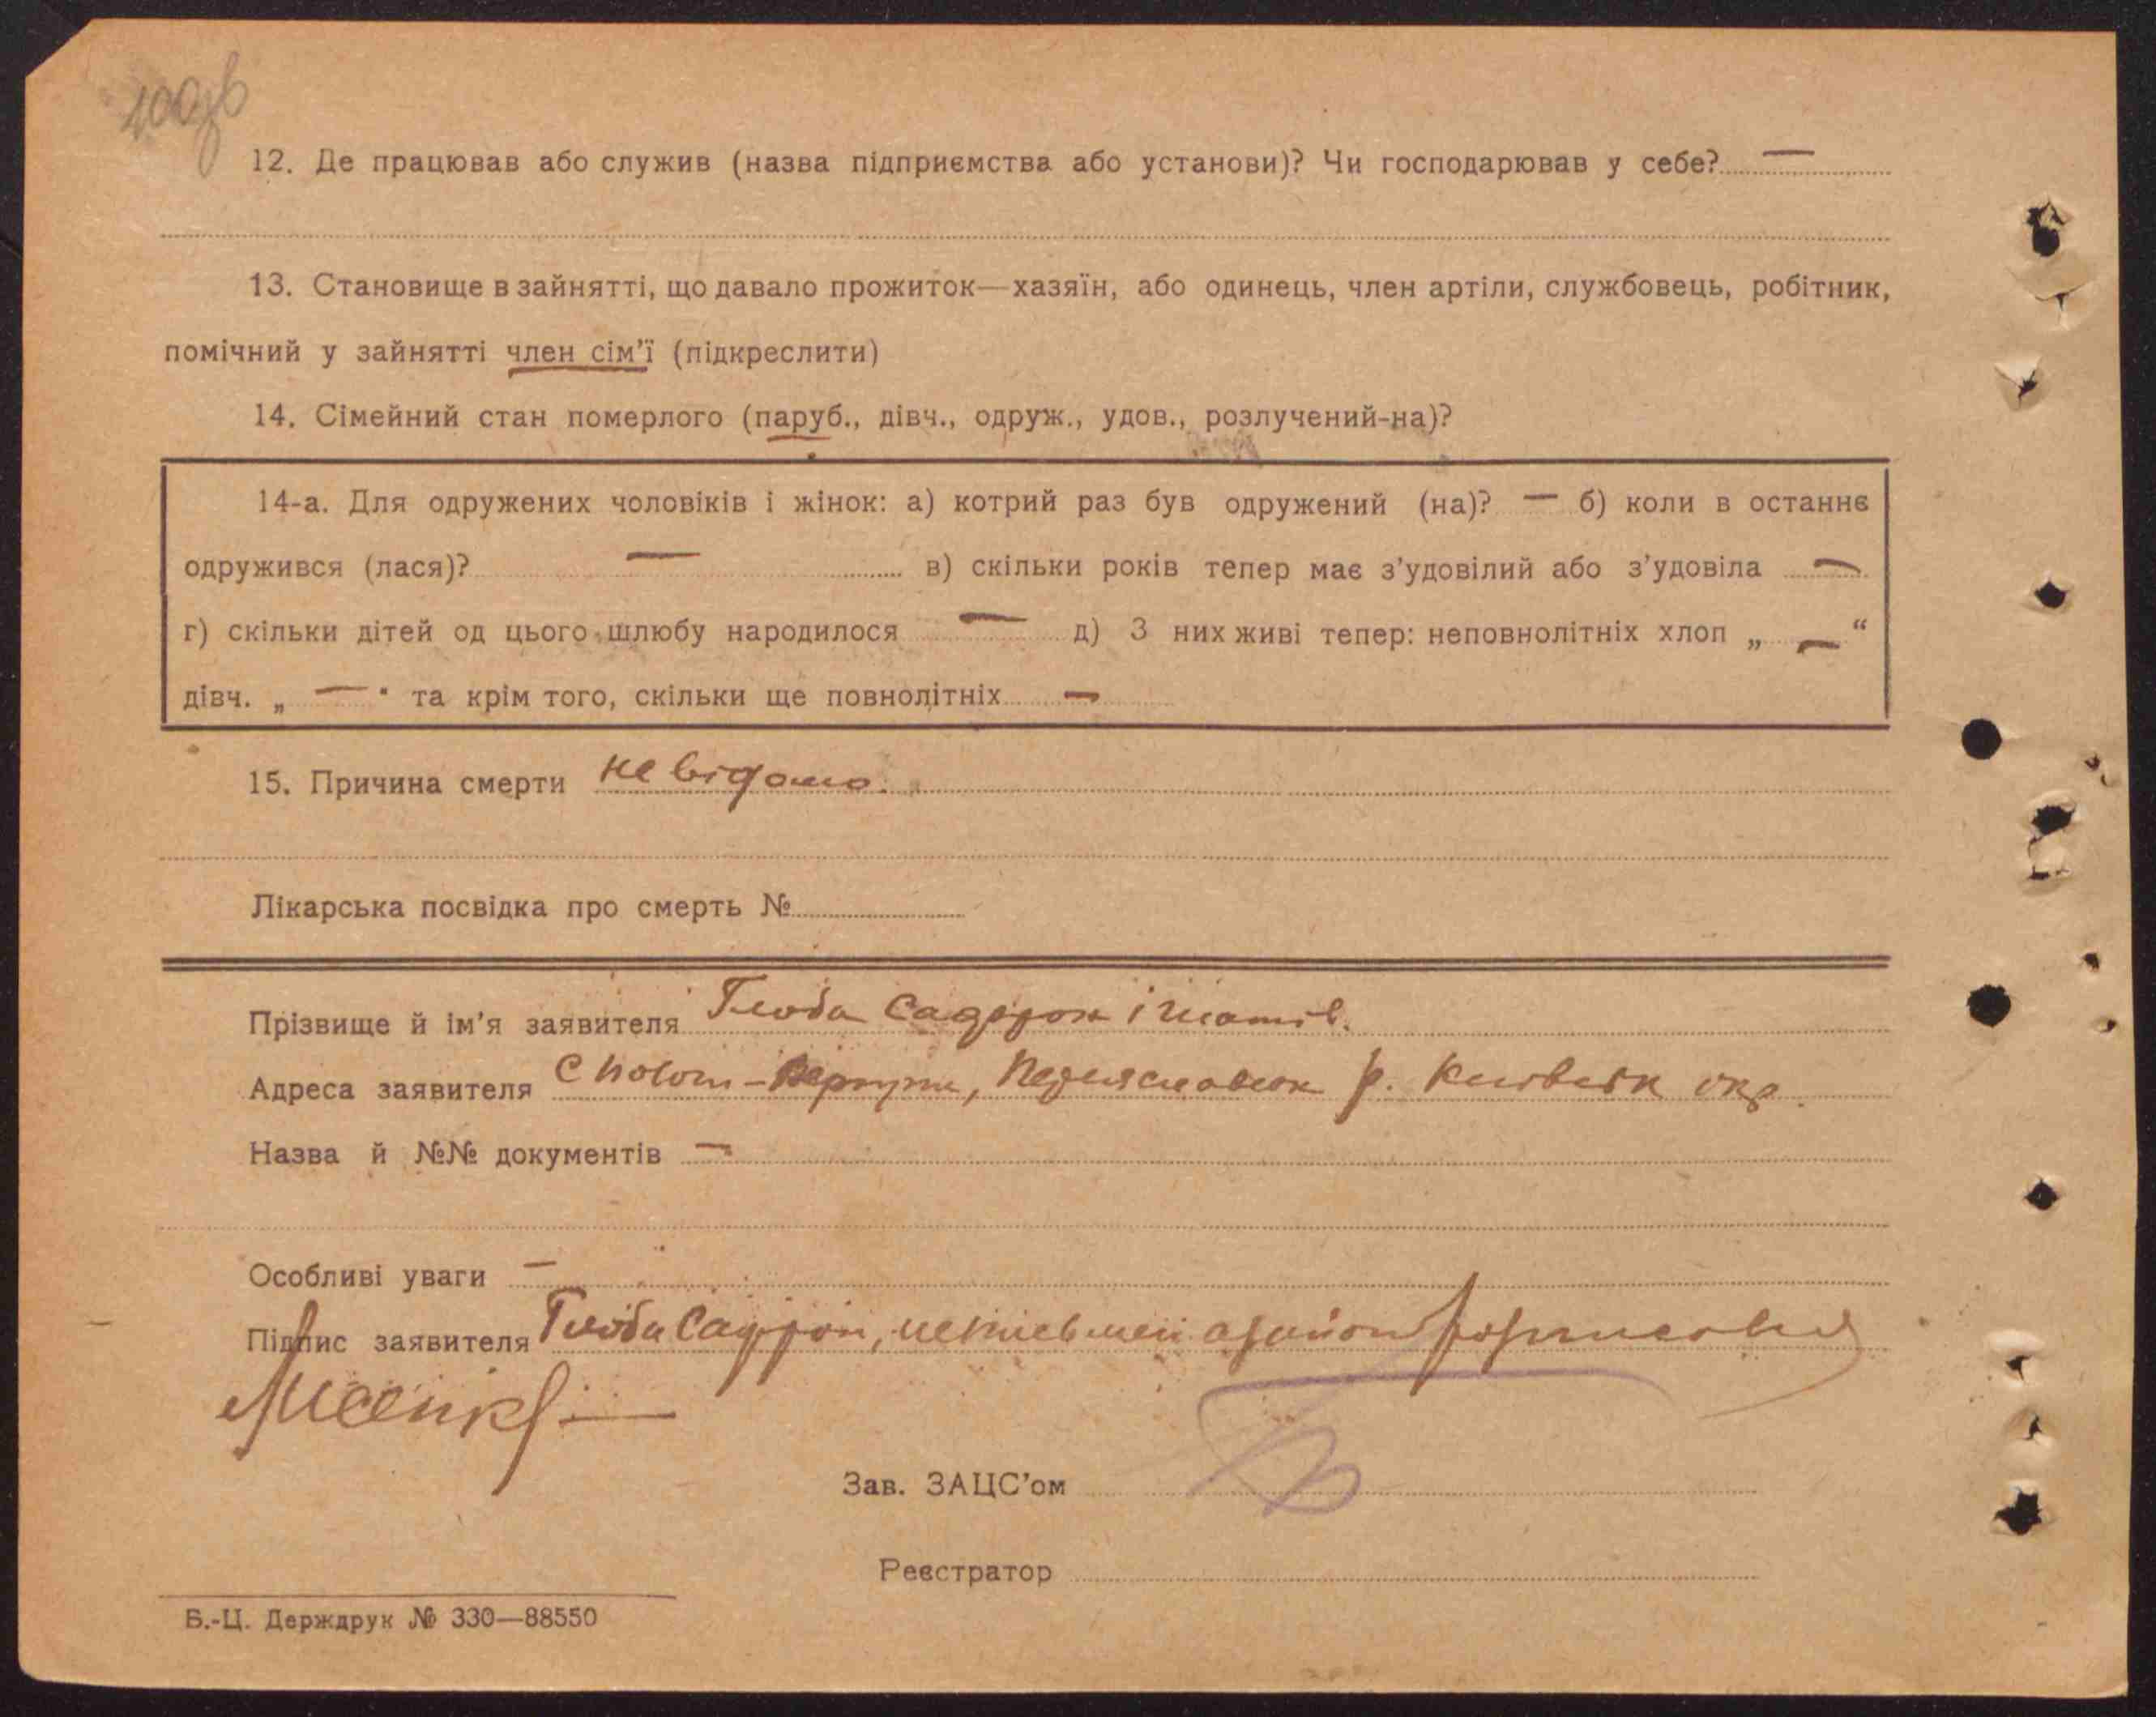 12. Де працював або служив (назва підприємства або установи)? Чи господарював у себе? —
13. Становище в зайнятті, що давало прожиток—хазяїн, або одинець, член артіли, службовець, робітник,
помічний у зайнятті член сім'ї (підкреслити)
14. Сімейний стан померлого (паруб., дівч., одруж., удов., розлучений-на)?
14-а. Для одружених чоловіків і жінок: а) котрий раз був одружений (на)? — б) коли в останнє
одружився (лася)? — в) скільки років тепер має з'удовілий або з'удовіла —
г) скільки дітей од цього шлюбу народилося — д) З них живі тепер: неповнолітніх хлоп „ — “
дівч. „ — “ та крім того, скільки ще повнолітніх —
15. Причина смерти не відомо.
Лікарська посвідка про смерть №
Прізвище й ім'я заявителя Глоба
Адреса заявителя с р. окр.
Назва й №№ документів —
Особливі уваги —
Підпис заявителя Глоба
Зав. ЗАЦС'ом
Реєстратор
Б.-Ц. Держдрук № 330—88550